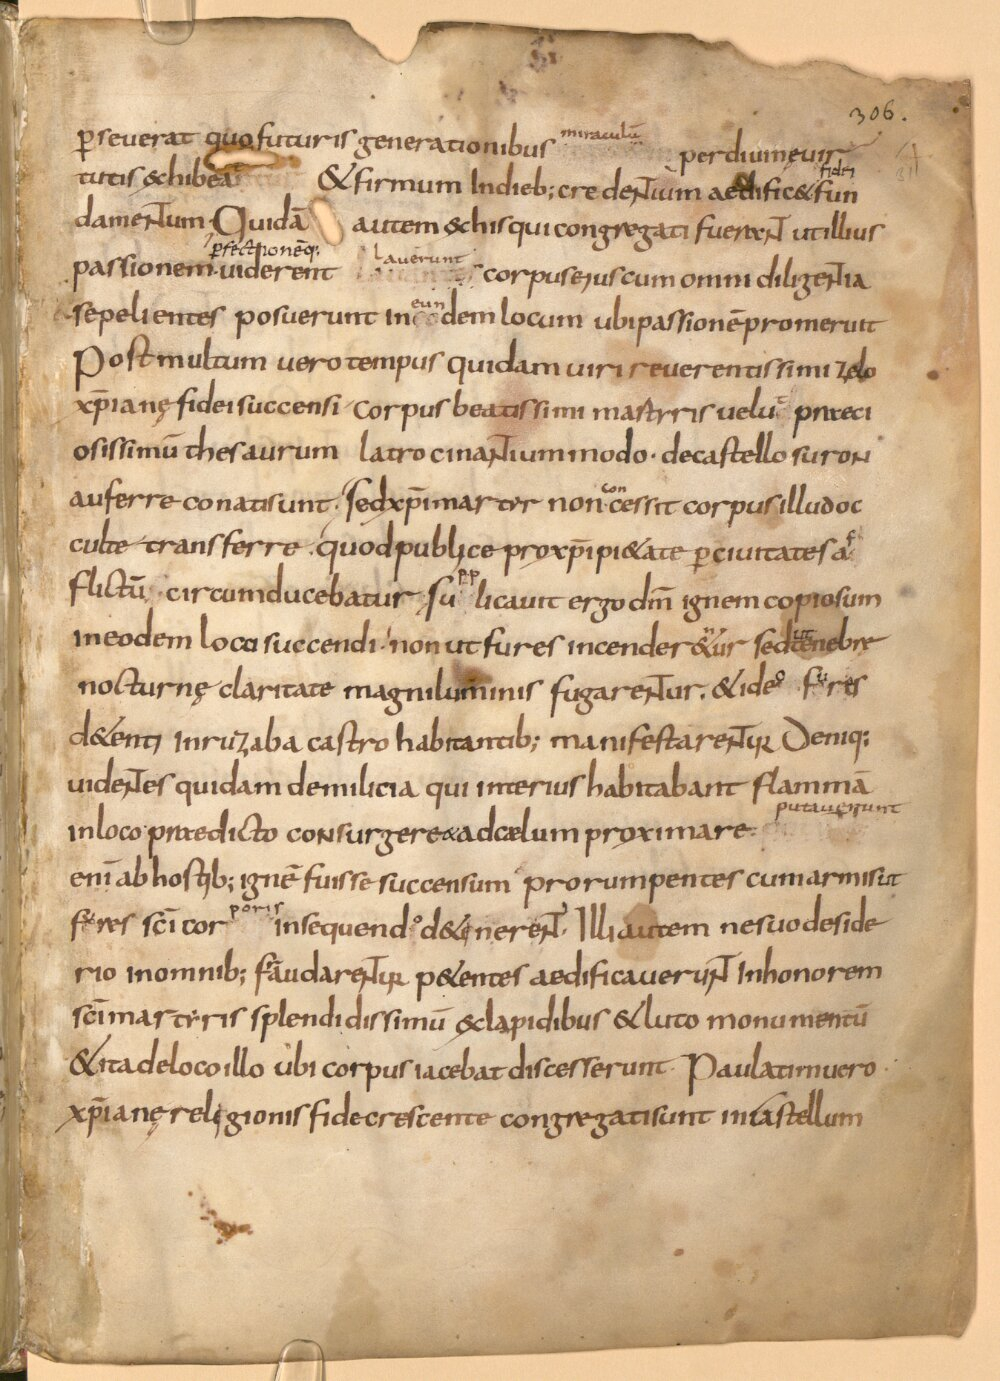 306.
ꝑseverat quo futuris generationibus miraculū per diuinę uir
tutis exhibeat & firmum In dieb; credentium aedific& fidei fun
damentum. Quidā autem ex his qui congregati fuerant utillius
passionem ꝑfectionēq; uiderent Laverunt corpus eius cum omni diligentia
sepelientes posuerunt in eundem locum ubi passionē promeruit
Post multum uero tempus quidam uiri reverentissimi zelo
xp̄ianę fidei succensi corpus beatissimi martyris uelut praeci
osissimū thesaurum latrocinantium modo. de castello suron
auferre conati sunt. Sed xp̄i martyr non concessit corpus illud oc
culte transferre. quod publice pro xp̄i pi&ate ꝑ ciuitates af
flictū circumducebatur. Supplicauit ergo dn̄m ignem copiosum
in eodem loco succendi. non ut fures incender&ur sed ut tenebrę
nocturnę claritate magni luminis fugarentur. & ideo fures
d&enti in ruzaba castro habitantib; manifestarentur Deniq;
uidentes quidam de milicia qui interius habitabant flammā
in loco praedicto consurgere & ad cælum proximare. putauerunt
enī ab hostib; ignē fuisse succensum prorumpentes cum armis ut
fures sc̄i corporis insequendo d&inerent. Illi autem ne suo deside
rio in omnib; fraudarentur p&entes aedificauerunt In honorem
sc̄i martyris splendidissimū ex lapidibus & luto monumentū
& ita de loco illo ubi corpus iacebat discesserunt. Paulatim uero
xp̄ianę religionis fide crescente congregati sunt in castellum